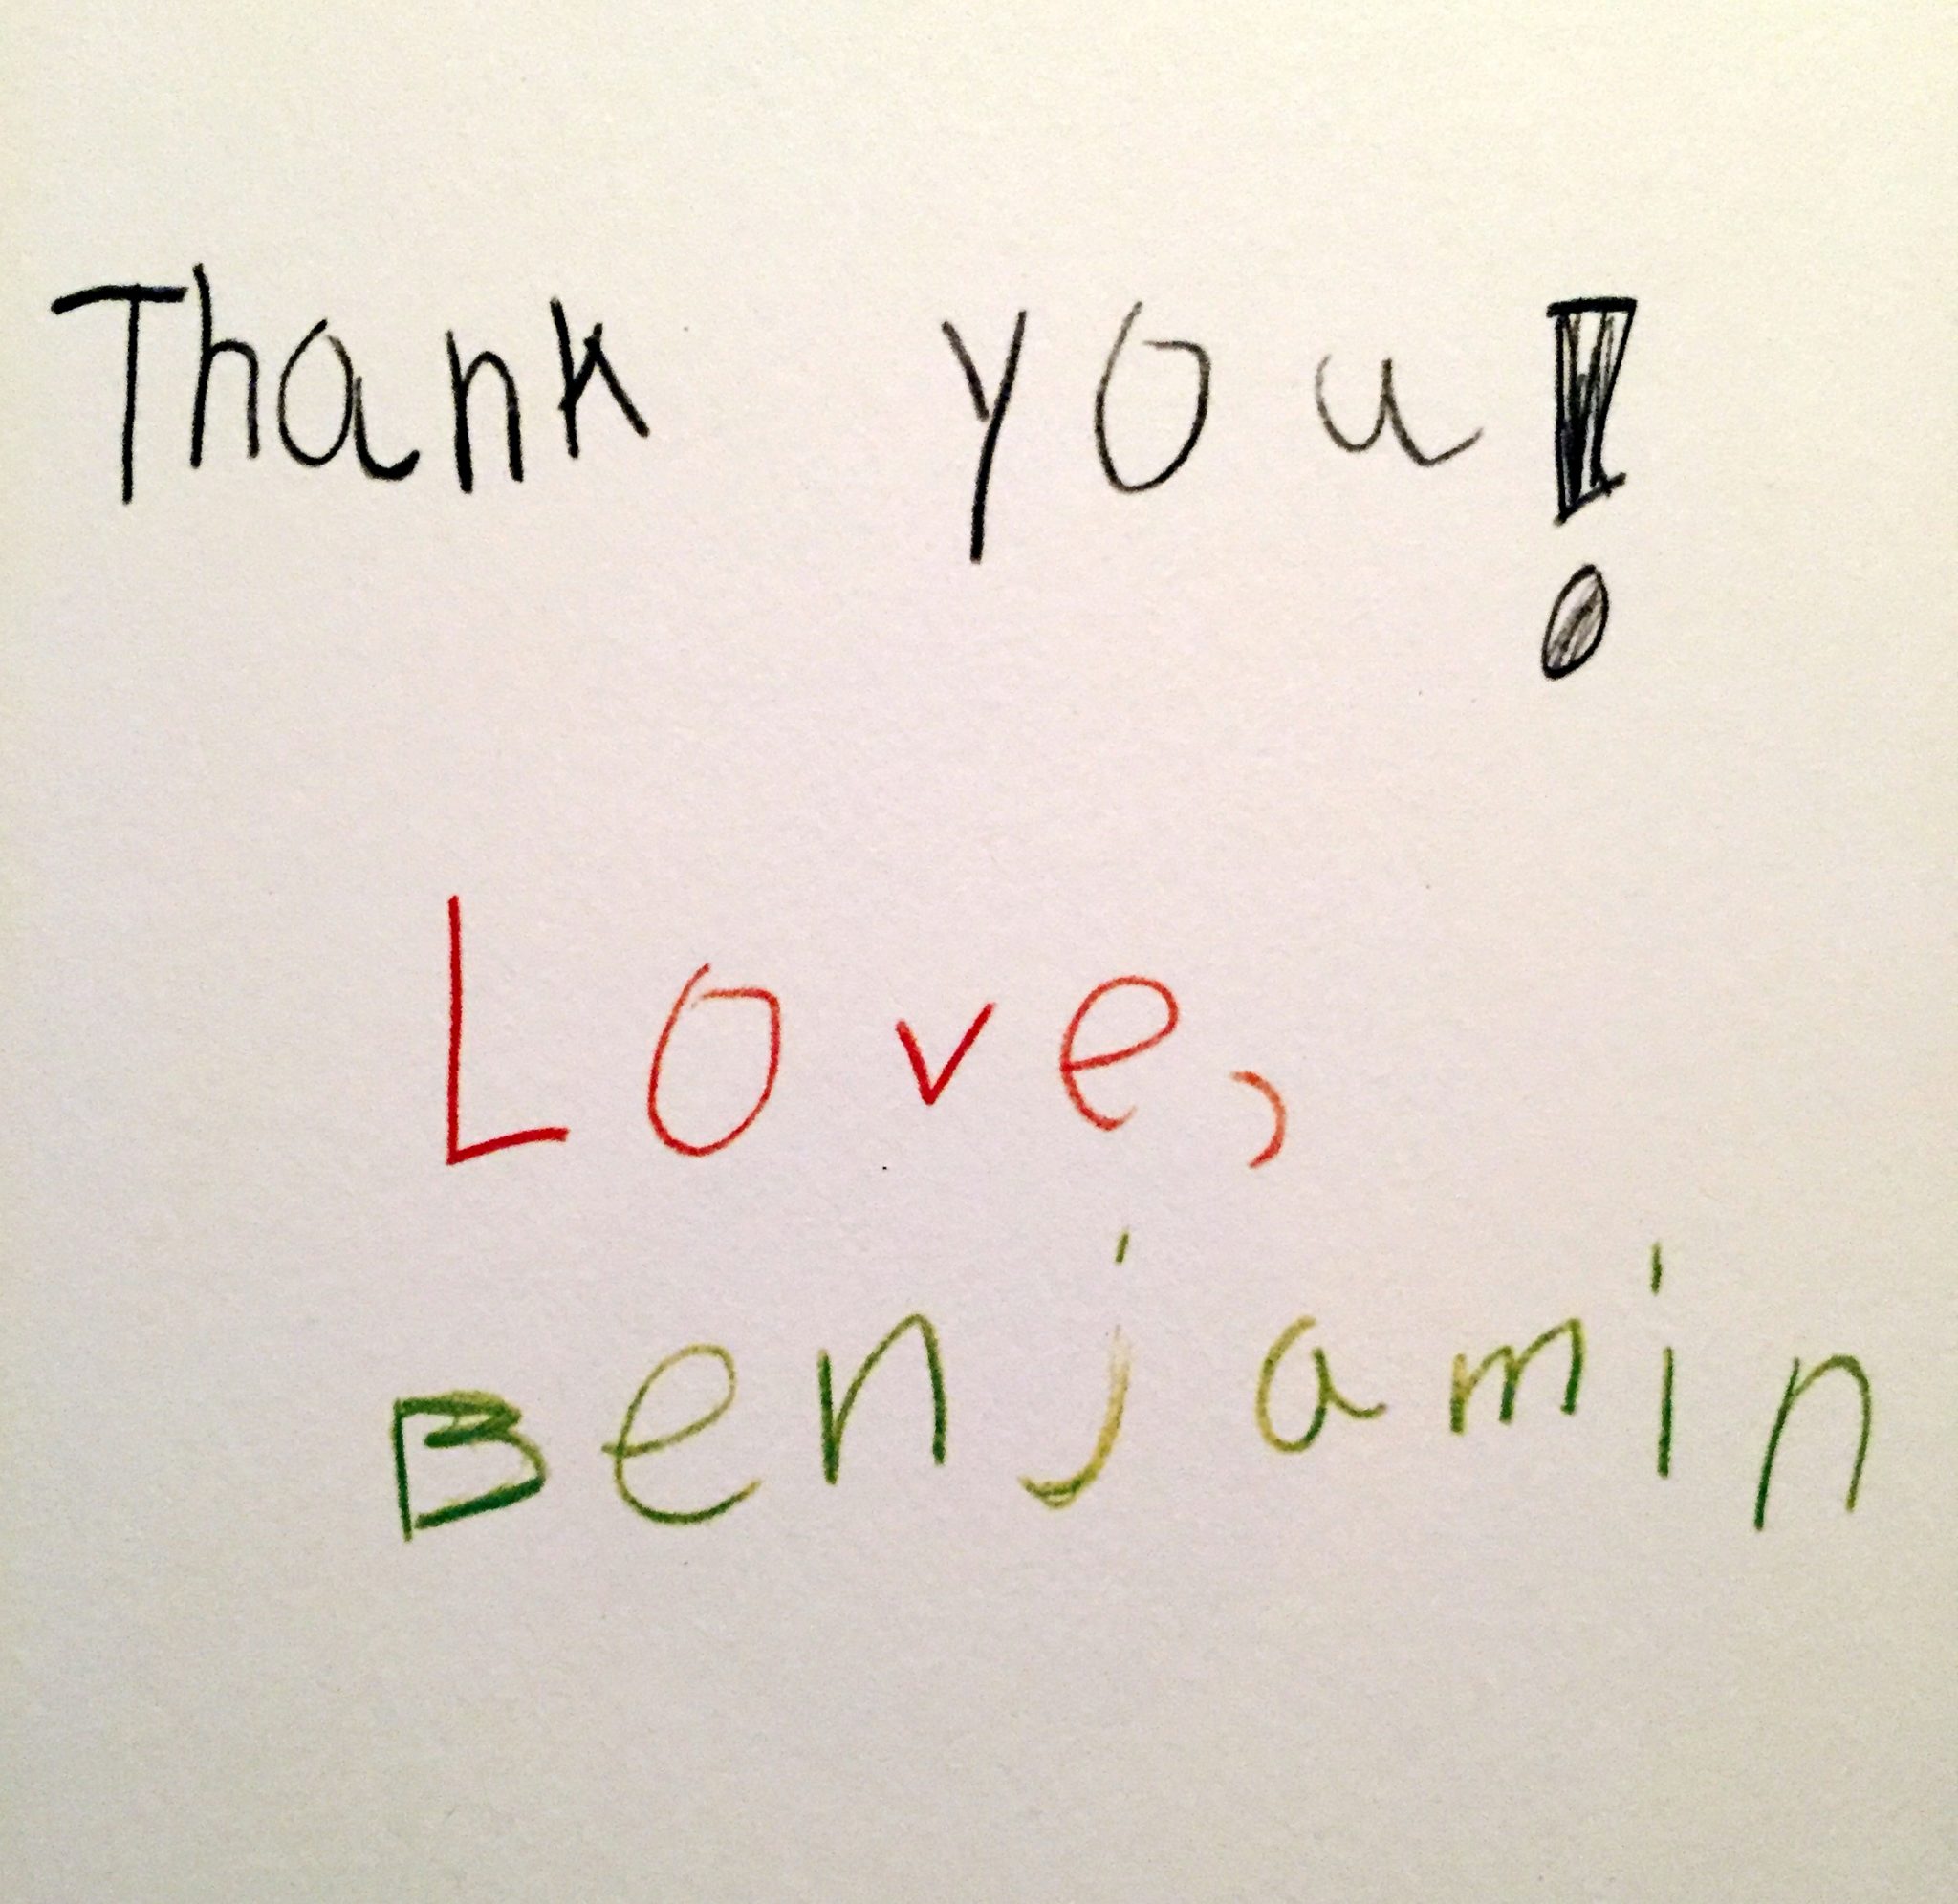 Thank you!
Love,
Benjamin